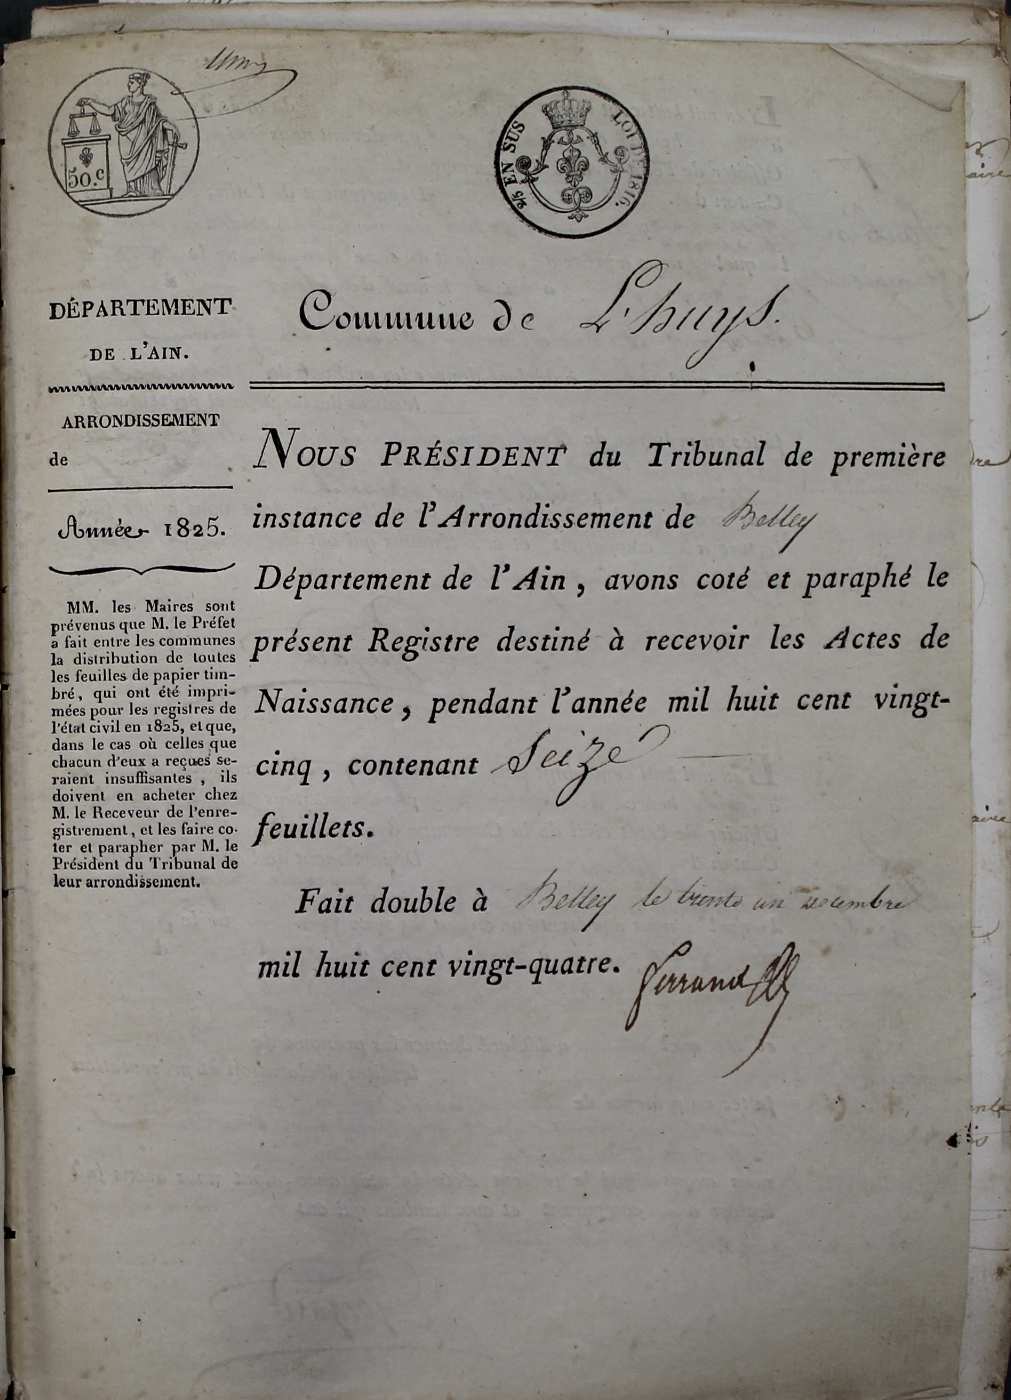 50.c
25 EN SUS LOI DE 1816.
DÉPARTEMENT
DE L'AIN.
Commune de L'huys.
ARRONDISSEMENT
de
Année 1825.
MM. les Maires sont
prévenus que M. le Préfet
a fait entre les communes
la distribution de toutes
les feuilles de papier tim-
bré, qui ont été impri-
mées pour les registres de
l'état civil en 1825, et que,
dans le cas où celles que
chacun d'eux a reçues se-
raient insuffisantes, ils
doivent en acheter chez
M. le Receveur de l'enre-
gistrement, et les faire co-
ter et parapher par M. le
Président du Tribunal de
leur arrondissement.
NOUS PRÉSIDENT du Tribunal de première
instance de l'Arrondissement de Belley
Département de l'Ain, avons coté et paraphé le
présent Registre destiné à recevoir les Actes de
Naissance, pendant l'année mil huit cent vingt-
cinq, contenant Seize
feuillets.
Fait double à Belley le trente un décembre
mil huit cent vingt-quatre.